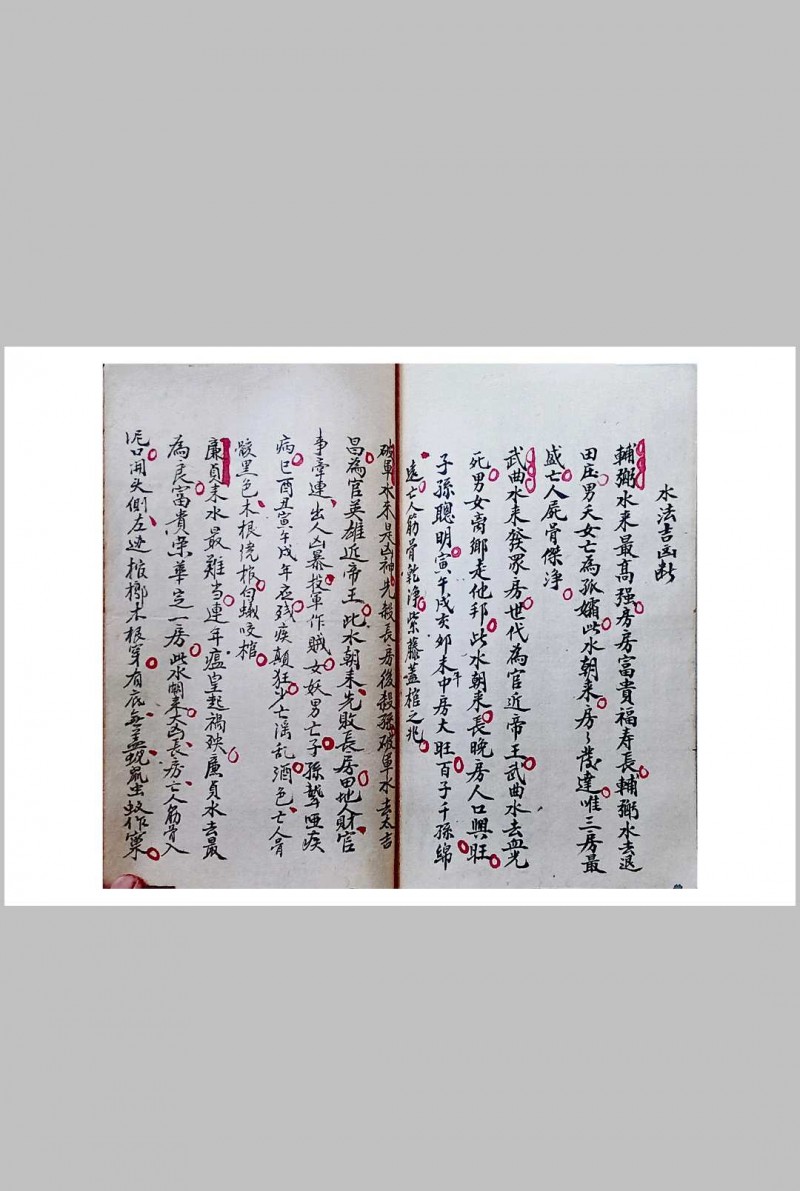 水法吉凶断
輔弼水来最高强房房富貴福寿長輔弼水去退
田庄男夭女亡為孤孀此水朝来房々發達唯三房最
盛亡人屍骨傑浄
武曲水来發眾房世代為官近帝王武曲水去血光
死男女离鄉走他邦此水朝来長晚房人口興旺
子孫聰明寅午戌亥卯未年中房大旺百子千孫綿
遠亡人筋骨乾浄紫藤蓋棺之兆
破軍水来是凶神先殺長房後殺孫破軍水去太吉
昌為官英雄近帝王此水朝来先敗長房田地人財官
事牽連出人凶暴投軍作賊女妖男亡子孫聾哑疾
病巳酉丑寅午戌年应残疾顛狂少亡淫乱酒色亡人骨
骸黑色木根绕棺白蟻咬棺
廉貞来水最難当連年瘟皇起禍殃廉貞水去最
為良富貴栄華定一房此水朝来大凶長房亡人筋骨入
泥口開头側左边棺槨木根穿有底無蓋蜆鼠虫蚁作窠